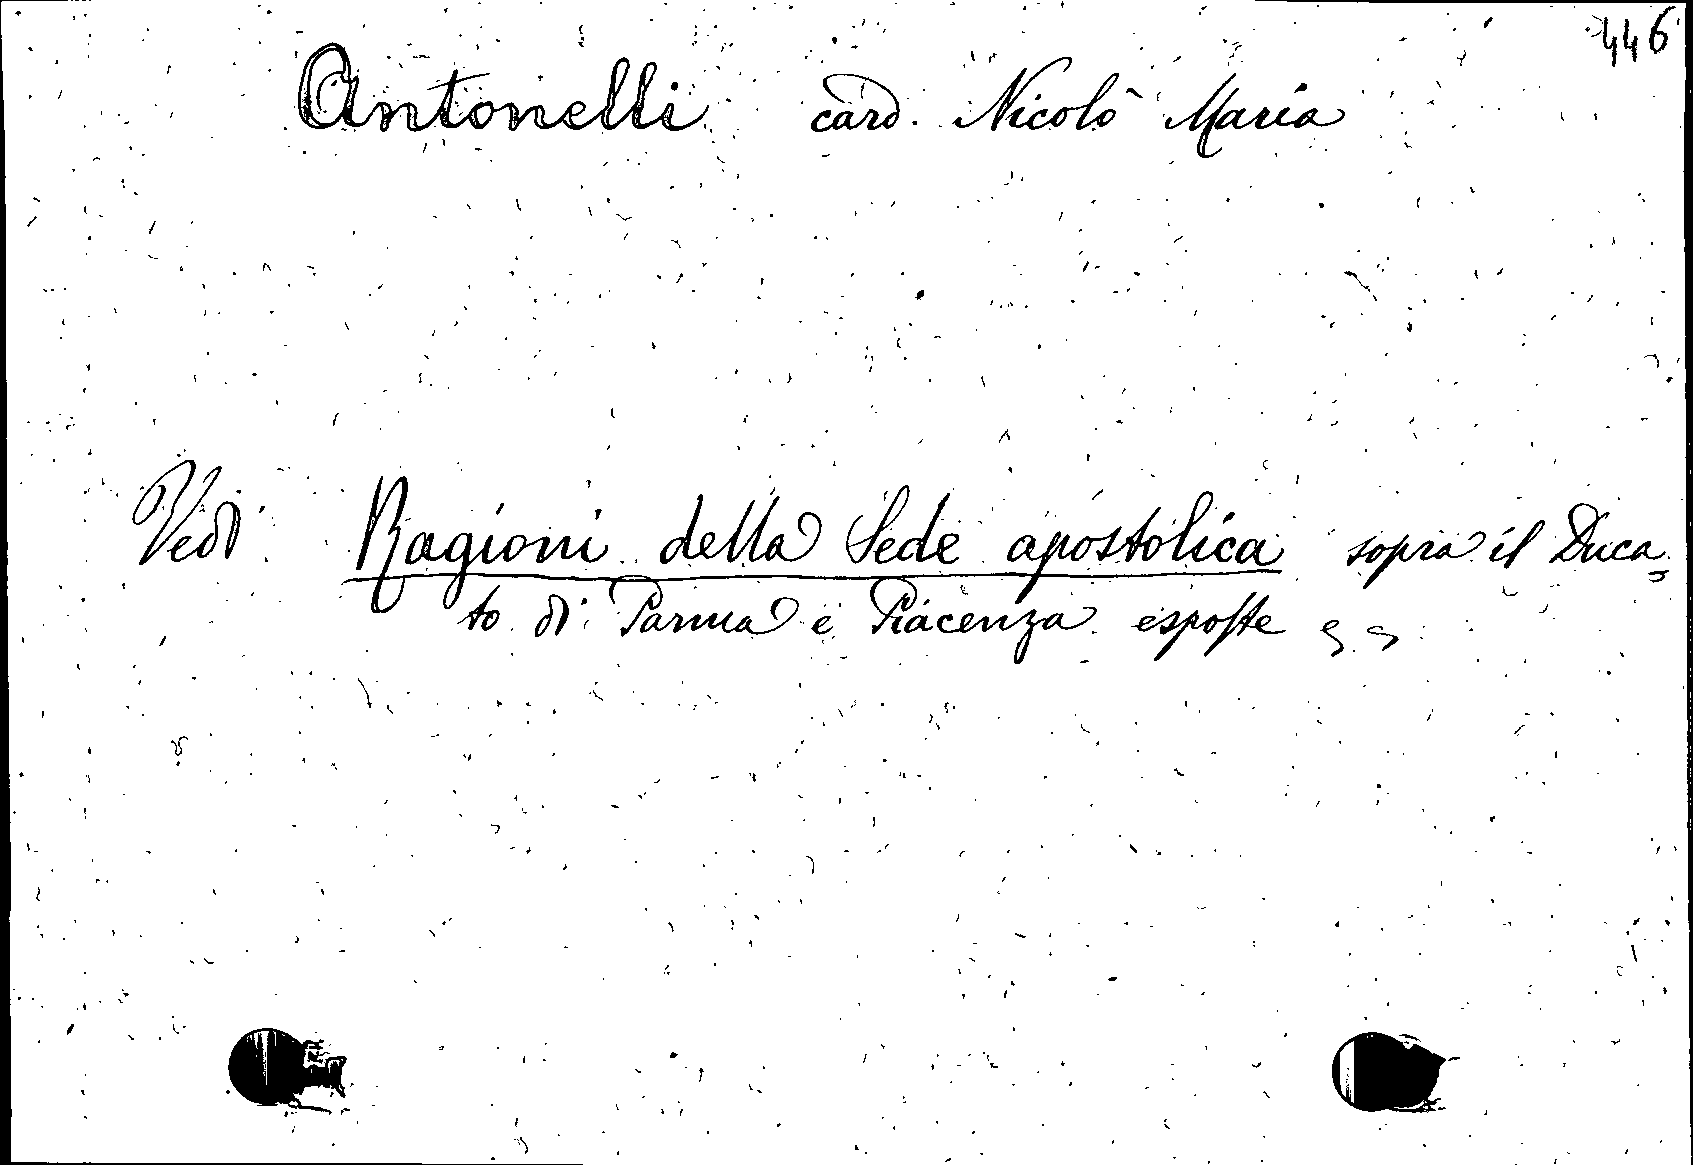 446
Antonelli card. Nicolò Maria
Vedi Ragioni della Sede apostolica sopra il Duca=
to di Parma e Piacenza esposte